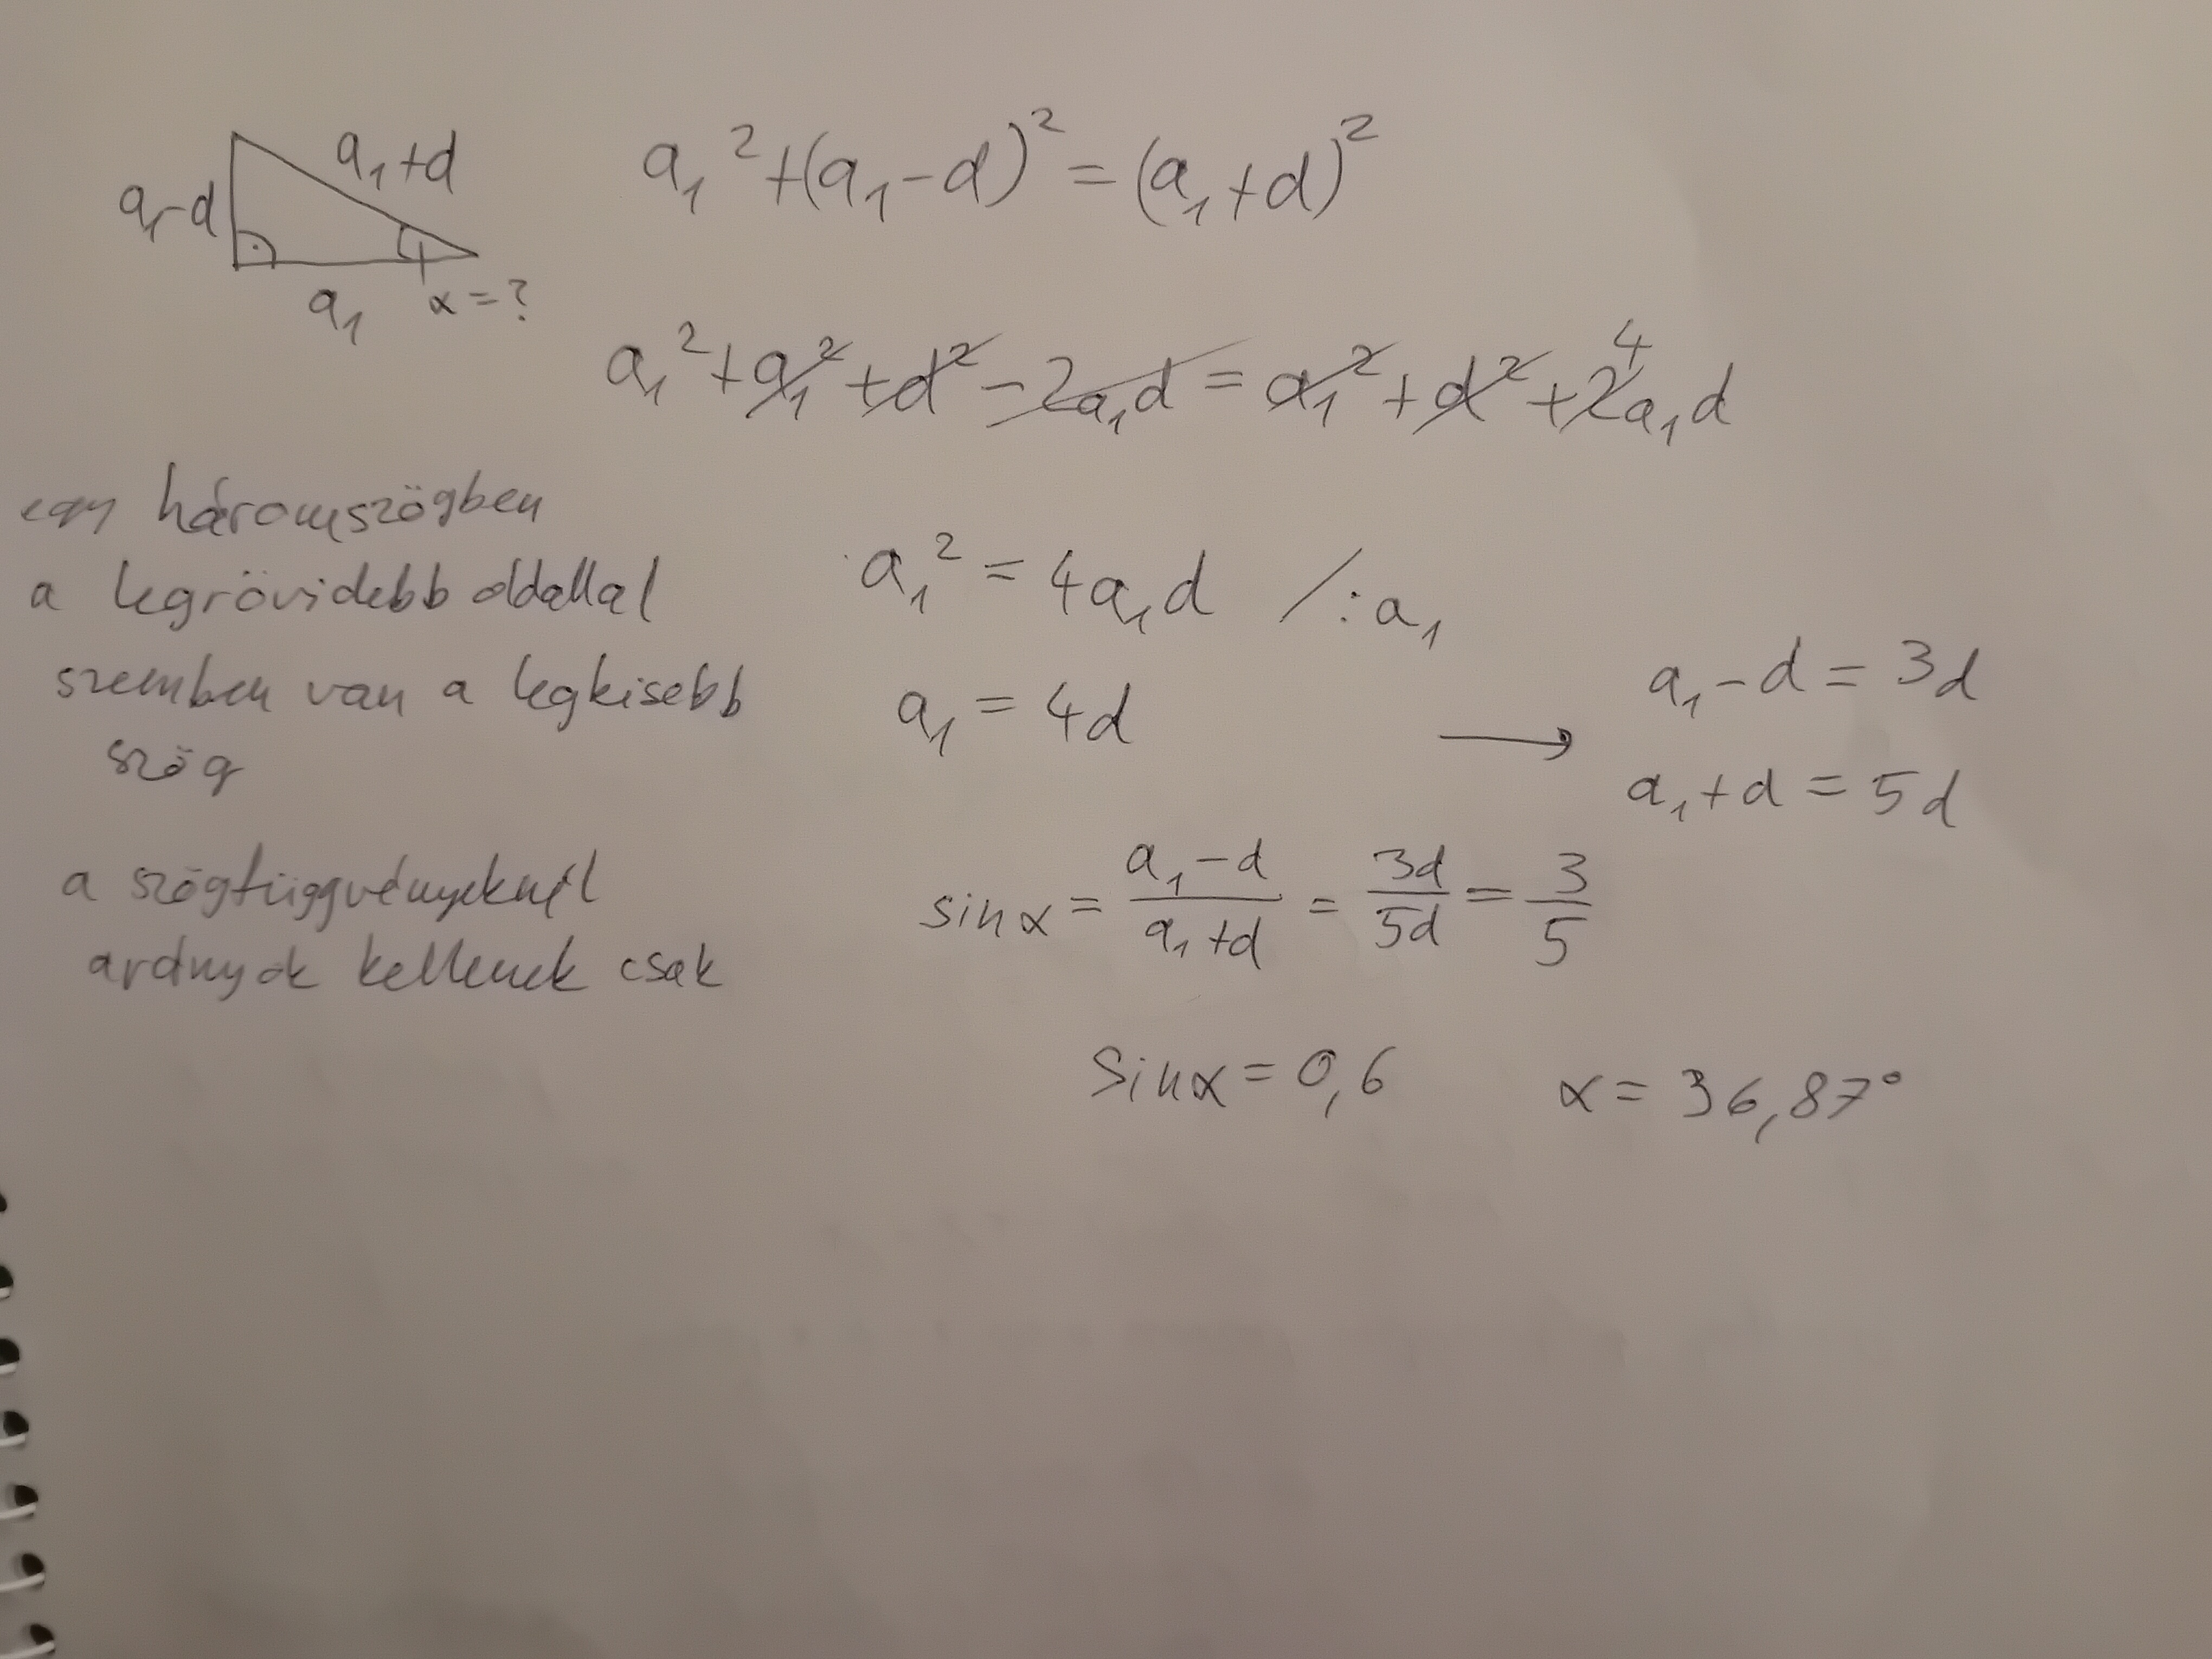 a₁+d
a₁-d
a₁
α=?
a₁²+(a₁-d)²=(a₁+d)²
a₁²+a₁²+d²-2a₁d=a₁²+d²+2a₁d
4
egy háromszögben
a legrövidebb oldallal
szemben van a legkisebb
szög
a₁²=4a₁d /:a₁
a₁=4d
→
a₁-d=3d
a₁+d=5d
a szögfüggvényeknél
arányok kellenek csak
sinα=(a₁-d)/(a₁+d)=3d/5d=3/5
sinα=0,6 α=36,87°